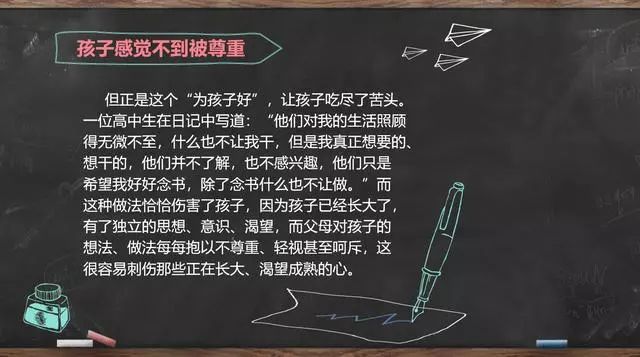 孩子感觉不到被尊重
但正是这个“为孩子好”，让孩子吃尽了苦头。
一位高中生在日记中写道：“他们对我的生活照顾
得无微不至，什么也不让我干，但是我真正想要的、
想干的，他们并不了解，也不感兴趣，他们只是
希望我好好念书，除了念书什么也不让做。”而
这种做法恰恰伤害了孩子，因为孩子已经长大了，
有了独立的思想、意识、渴望，而父母对孩子的
想法、做法每每抱以不尊重、轻视甚至呵斥，这
很容易刺伤那些正在长大、渴望成熟的心。